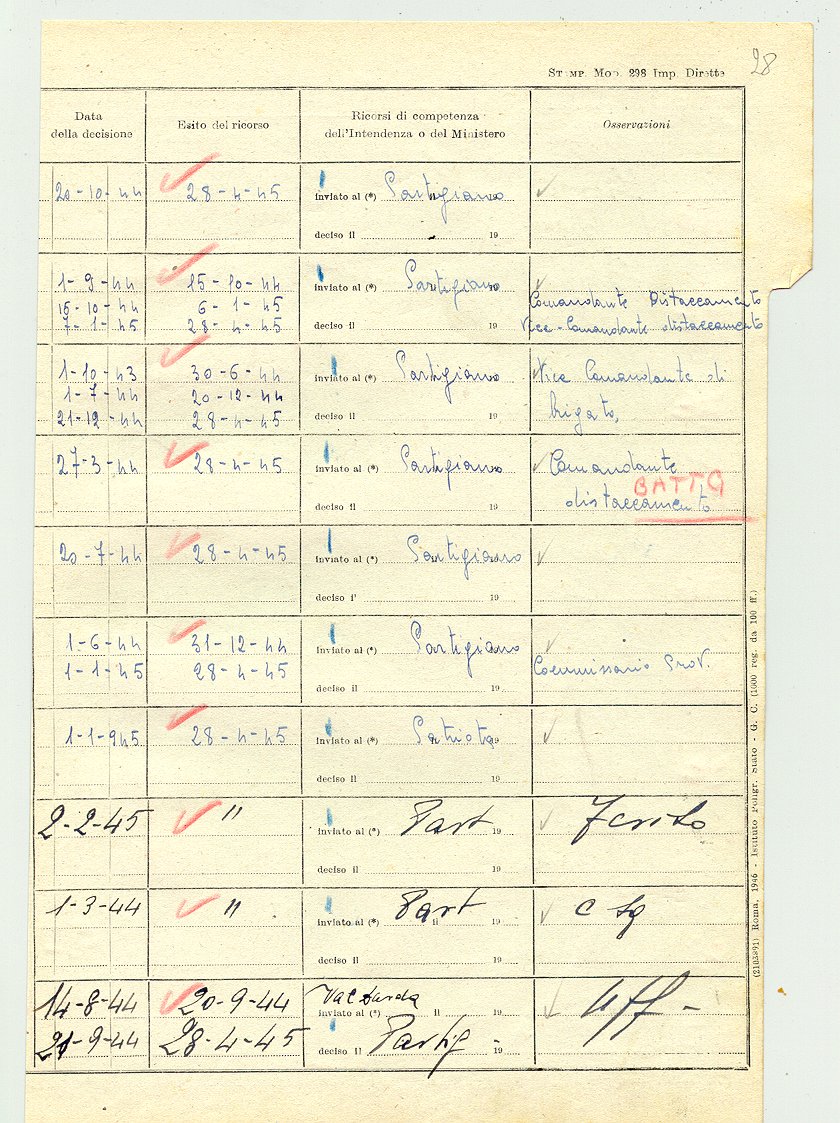 28
STAMP. MOD. 298 Imp. Dirette
Data della decisione
Esito del ricorso
Ricorsi di competenza dell'Intendenza o del Ministero
Osservazioni
20-10-44 28-4-45 inviato al (*) Partigiano
deciso il 19
1-9-44 15-10-44 inviato al (*) Partigiano
15-10-44 6-1-45 Comandante Distaccamento
7-1-45 28-4-45 deciso il 19 Vice-Comandante distaccamento
1-10-43 30-6-44 inviato al (*) Partigiano Vice Comandante di
1-7-44 20-12-44
21-12-44 28-4-45 deciso il 19 brigata,
27-3-44 28-4-45 inviato al (*) Partigiano Comandante
BATTO
deciso il 19 distaccamento
20-7-44 28-4-45 inviato al (*) Partigiano
deciso il 19
1-6-44 31-12-44 inviato al (*) Partigiano
1-1-45 28-4-45 Commissario Prov.
deciso il 19
1-1-945 28-4-45 inviato al (*) Patriota 19
deciso il 19
2-2-45 " inviato al (*) Part 19 Ferito
deciso il 19
1-3-44 " inviato al (*) Part il 19 C Sq
deciso il 19
14-8-44 20-9-44 Val Tarda
inviato al (*) il 19 Uff -
21-9-44 28-4-45 deciso il Partig - 19
(2103891) Roma, 1946 - Istituto Poligr. Stato - G. C. (1000 reg. da 100 ff.)